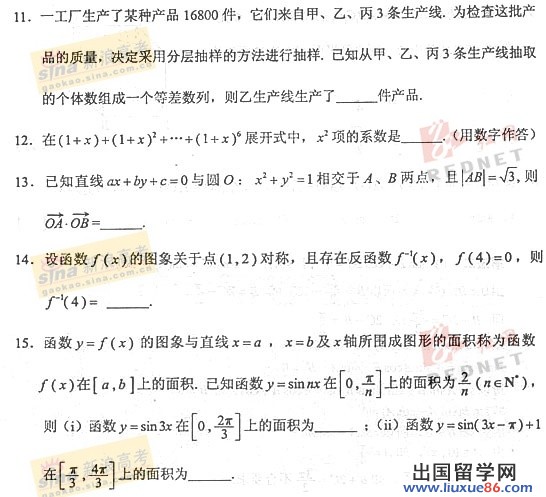 11. 一工厂生产了某种产品 16800 件，它们来自甲、乙、丙 3 条生产线. 为检查这批产
品的质量，决定采用分层抽样的方法进行抽样. 已知从甲、乙、丙 3 条生产线抽取
的个体数组成一个等差数列，则乙生产线生产了______件产品.
12. 在(1+x)+(1+x)²+⋯+(1+x)⁶ 展开式中，x² 项的系数是______.（用数字作答）
13. 已知直线 ax+by+c=0 与圆 O：x²+y²=1 相交于 A、B 两点，且|AB|=√3, 则
OA·OB=______.
14. 设函数 f(x) 的图象关于点(1,2)对称，且存在反函数 f⁻¹(x)，f(4)=0，则
f⁻¹(4)= ______.
15. 函数 y=f(x) 的图象与直线 x=a，x=b 及 x 轴所围成图形的面积称为函数
f(x)在[a,b]上的面积. 已知函数 y=sin nx 在[0, π/n]上的面积为 2/n (n∈N*)，
则（i）函数 y=sin3x 在[0, 2π/3]上的面积为______；(ii) 函数 y=sin(3x-π)+1
在[π/3, 4π/3]上的面积为______.
sina 新浪高考
gaokao.sina.com.cn
红网
REDNET
出国留学网
www.liuxue86.com